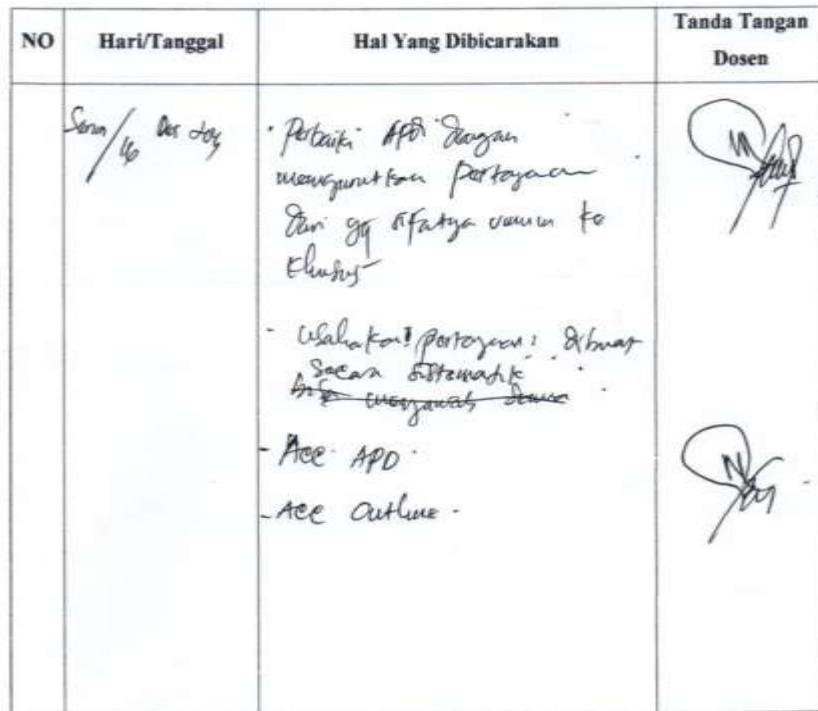 NO
Hari/Tanggal
Hal Yang Dibicarakan
Tanda Tangan
Dosen
Senin/16 Des
· Perbaiki APD dengan
mengurutkan pertanyaan
dari yg sifatnya umum ke
khusus
- Usahakan pertanyaan: dibuat
secara sistematik
- Acc APD.
- Acc Outline.